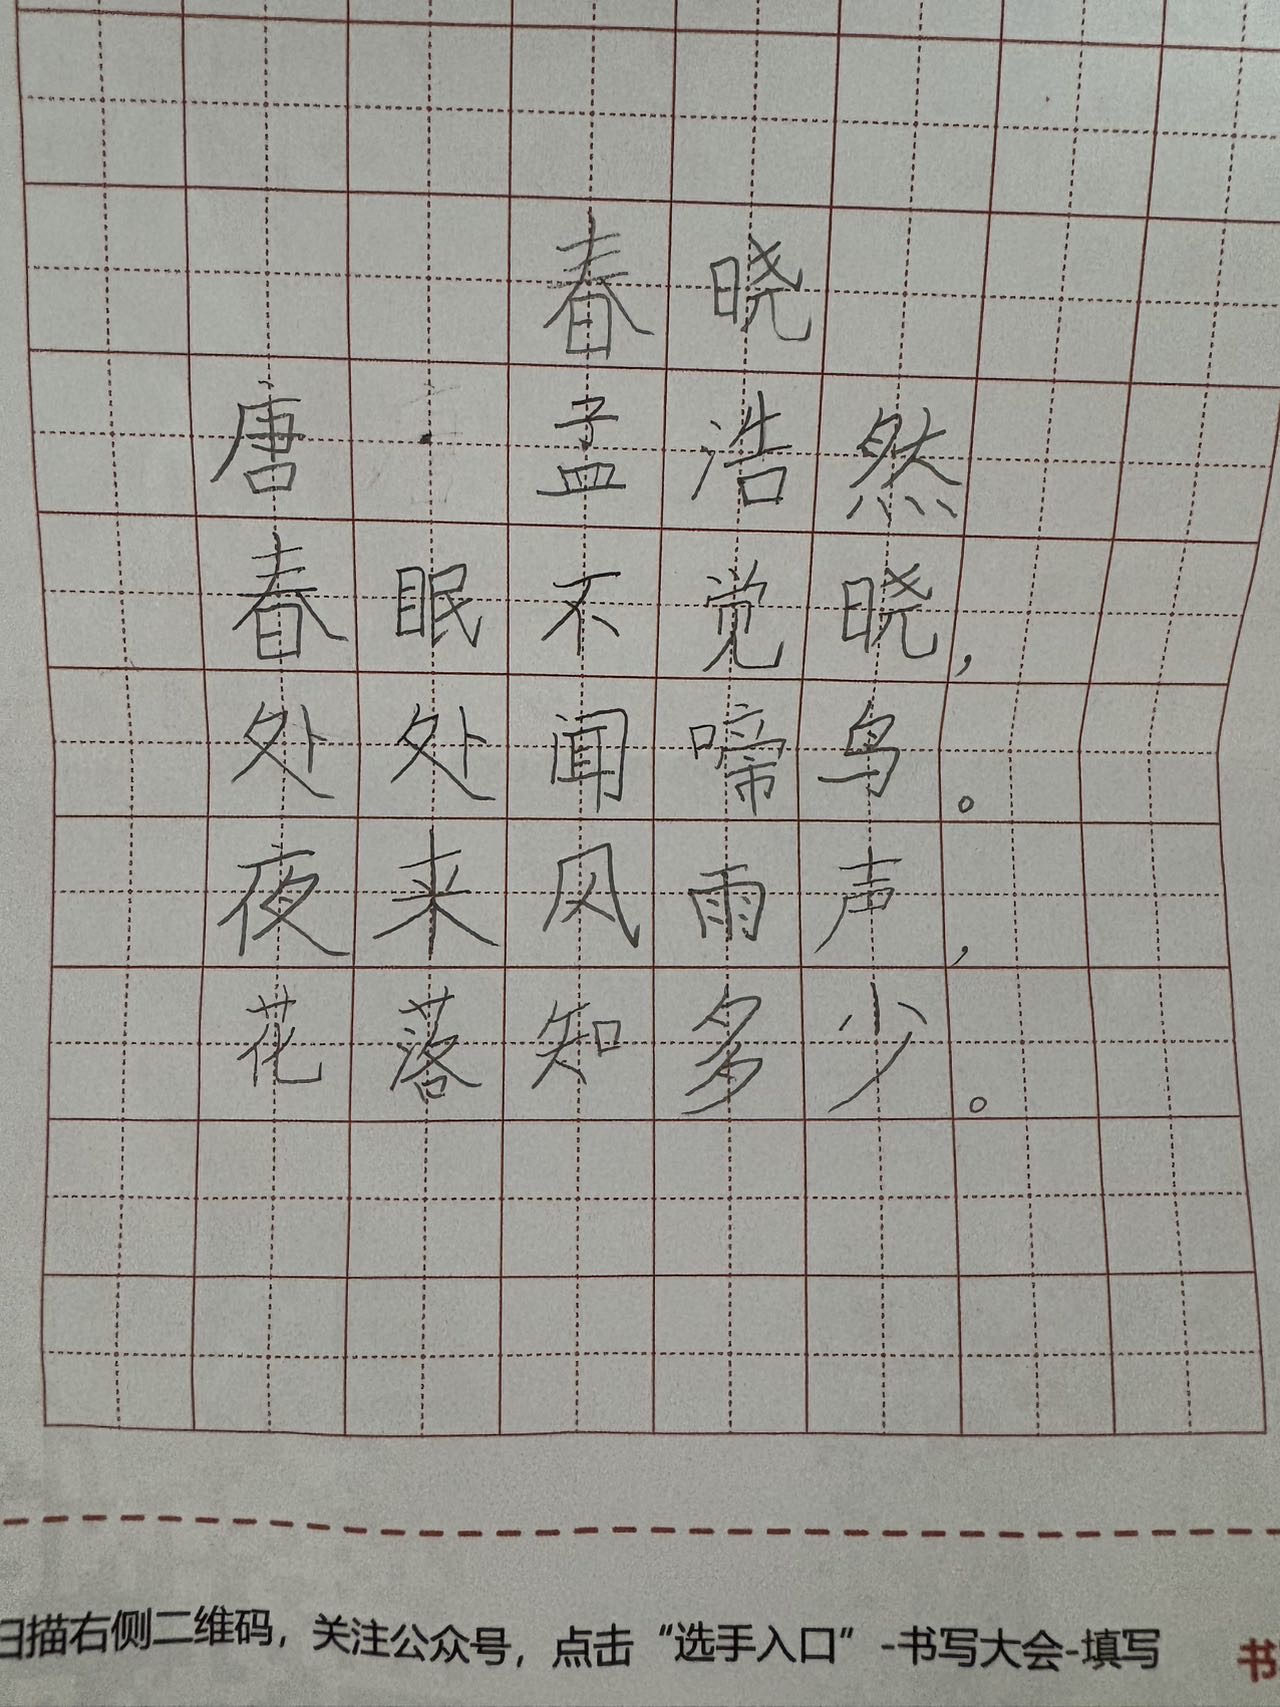 春晓
唐·孟浩然
春眠不觉晓，
处处闻啼鸟。
夜来风雨声，
花落知多少。
扫描右侧二维码，关注公众号，点击“选手入口”-书写大会-填写
书